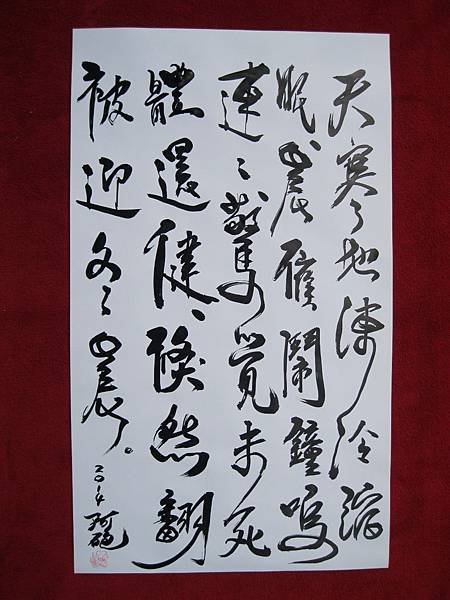 天寒地凍冷縮
眠晨催鬧鐘鳴
連連驚覺未死
體還健然翻
被迎冬晨。
2014